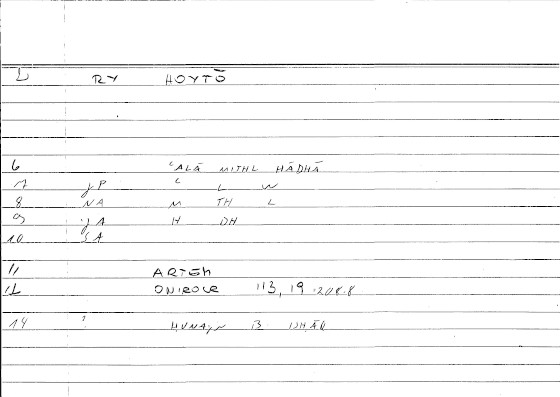 2 RY HOYTŌ
6 ʿALĀ MITHL HĀDHĀ
7 P ʿ L W
8 NA M TH L
9 A H DH
10 SA
11 ARTEM
12 ONIROCR 113, 19
14 HUNAYN B